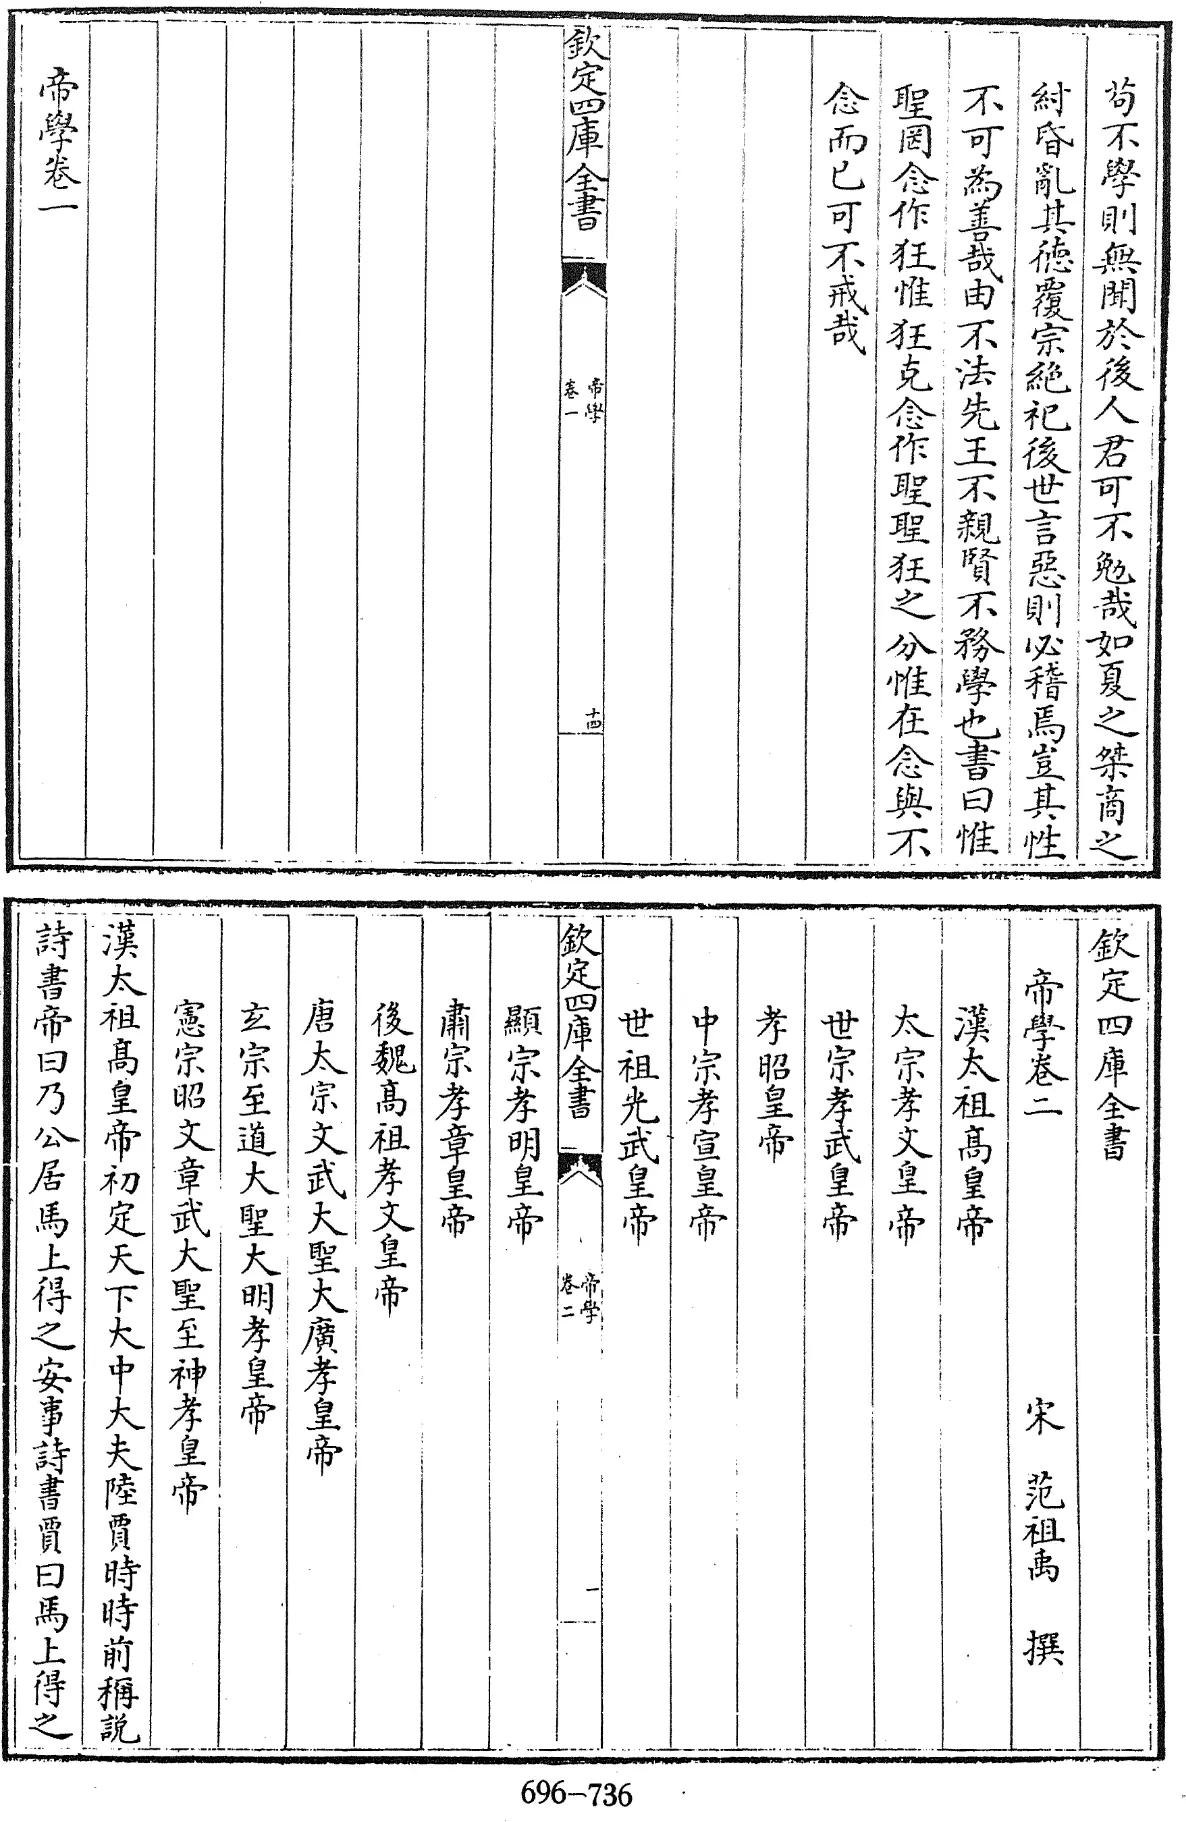 苟不學則無聞於後人君可不勉哉如夏之桀商之
紂昏亂其徳覆宗絶祀後世言惡則必稽焉豈其性
不可為善哉由不法先王不親賢不務學也書曰惟
聖罔念作狂惟狂克念作聖聖狂之分惟在念與不
念而已可不戒哉
欽定四庫全書
帝學
卷一
十四
帝學卷一
欽定四庫全書
帝學卷二
宋 范祖禹 撰
漢太祖髙皇帝
太宗孝文皇帝
世宗孝武皇帝
孝昭皇帝
中宗孝宣皇帝
世祖光武皇帝
欽定四庫全書
帝學
卷二
一
顯宗孝明皇帝
肅宗孝章皇帝
後魏髙祖孝文皇帝
唐太宗文武大聖大廣孝皇帝
玄宗至道大聖大明孝皇帝
憲宗昭文章武大聖至神孝皇帝
漢太祖髙皇帝初定天下大中大夫陸賈時時前稱説
詩書帝曰乃公居馬上得之安事詩書賈曰馬上得之
696-736